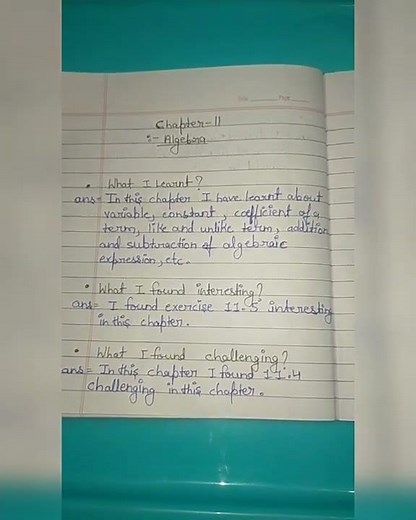 Date Page
Chapter-11
:- Algebra
• What I Learnt?
ans= In this chapter I have learnt about
variable, constant, coefficient of a
term, like and unlike term, addition
and subtraction of algebraic
expression, etc.
• What I found interesting?
ans= I found exercise 11.5 interesting
in this chapter.
• What I found challenging?
ans= In this chapter I found 11.4
challenging in this chapter.